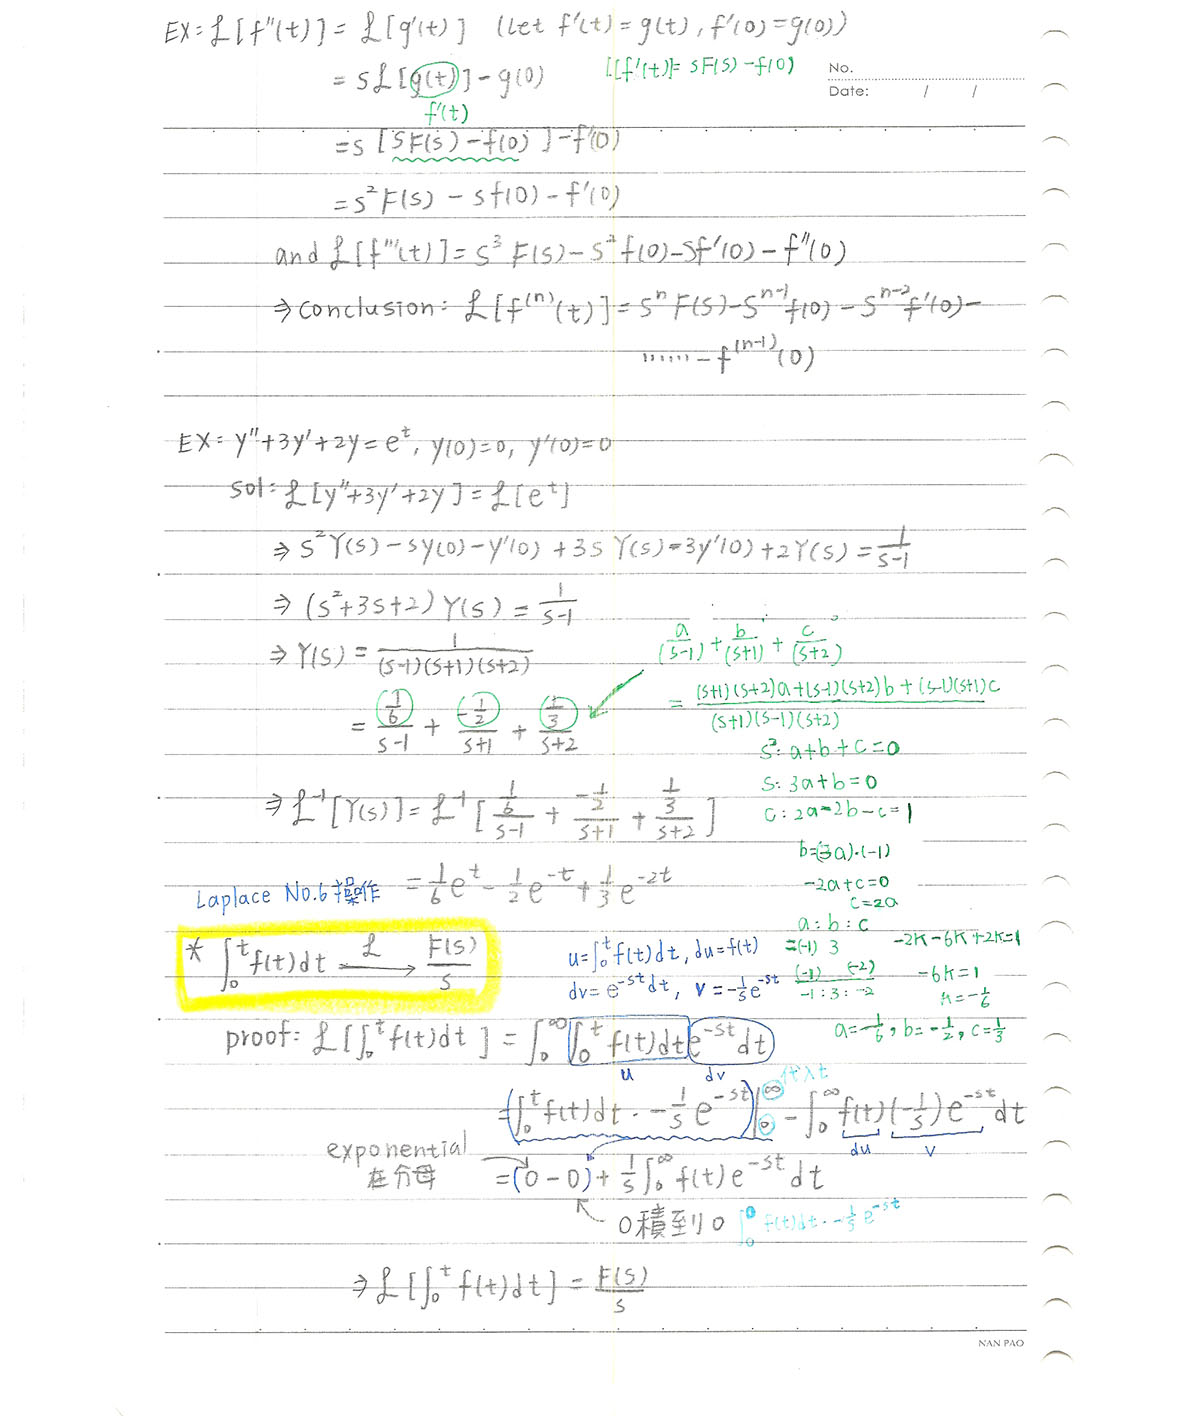 EX: ℒ[f''(t)] = ℒ[g'(t)] (Let f'(t) = g(t), f'(0) = g(0))
= sℒ[g(t)] - g(0)
f'(t)
ℒ[f'(t)] = sF(s) - f(0)
No.
Date: / /
= s [sF(s) - f(0)] - f'(0)
= s²F(s) - sf(0) - f'(0)
and ℒ[f'''(t)] = s³F(s) - s²f(0) - sf'(0) - f''(0)
⇒ Conclusion: ℒ[f⁽ⁿ⁾(t)] = sⁿF(s) - sⁿ⁻¹f(0) - sⁿ⁻²f'(0) -
...... - f⁽ⁿ⁻¹⁾(0)
EX: y'' + 3y' + 2y = eᵗ, y(0)=0, y'(0)=0
Sol: ℒ[y''+3y'+2y] = ℒ[eᵗ]
⇒ s²Y(s) - sy(0) - y'(0) + 3sY(s) - 3y'(0) + 2Y(s) = 1/(s-1)
⇒ (s²+3s+2) Y(s) = 1/(s-1)
⇒ Y(s) = 1/((s-1)(s+1)(s+2))
= (1/6)/(s-1) + (-1/2)/(s+1) + (1/3)/(s+2)
⇒ ℒ⁻¹[Y(s)] = ℒ⁻¹[(1/6)/(s-1) + (-1/2)/(s+1) + (1/3)/(s+2)]
= 1/6 eᵗ - 1/2 e⁻ᵗ + 1/3 e⁻²ᵗ
a/(s-1) + b/(s+1) + c/(s+2)
= ((s+1)(s+2)a + (s-1)(s+2)b + (s-1)(s+1)c)/((s+1)(s-1)(s+2))
s²: a+b+c=0
s: 3a+b=0
c: 2a-2b-c=1
b=(3a)·(-1)
-2a+c=0
c=2a
a:b:c
=(-1) 3
(-1) (-2)
-1:3:-2
-2k-6k+2k=1
-6k=1
k=-1/6
a=-1/6, b=-1/2, c=1/3
Laplace No.6操作
* ∫₀ᵗ f(t)dt ℒ→ F(s)/s
u=∫₀ᵗ f(t)dt, du=f(t)
dv=e⁻ˢᵗdt, v=-1/s e⁻ˢᵗ
proof: ℒ[∫₀ᵗ f(t)dt] = ∫₀^∞ ∫₀ᵗ f(t)dt e⁻ˢᵗ dt
u dv
代入t
= (∫₀ᵗ f(t)dt · -1/s e⁻ˢᵗ)|₀^∞ - ∫₀^∞ f(t)(-1/s)e⁻ˢᵗ dt
du v
exponential
在分母
= (0-0) + 1/s ∫₀^∞ f(t)e⁻ˢᵗ dt
0積到0 ∫₀⁰ f(t)dt · -1/s e⁻ˢᵗ
⇒ ℒ[∫₀ᵗ f(t)dt] = F(s)/s
NAN PAO